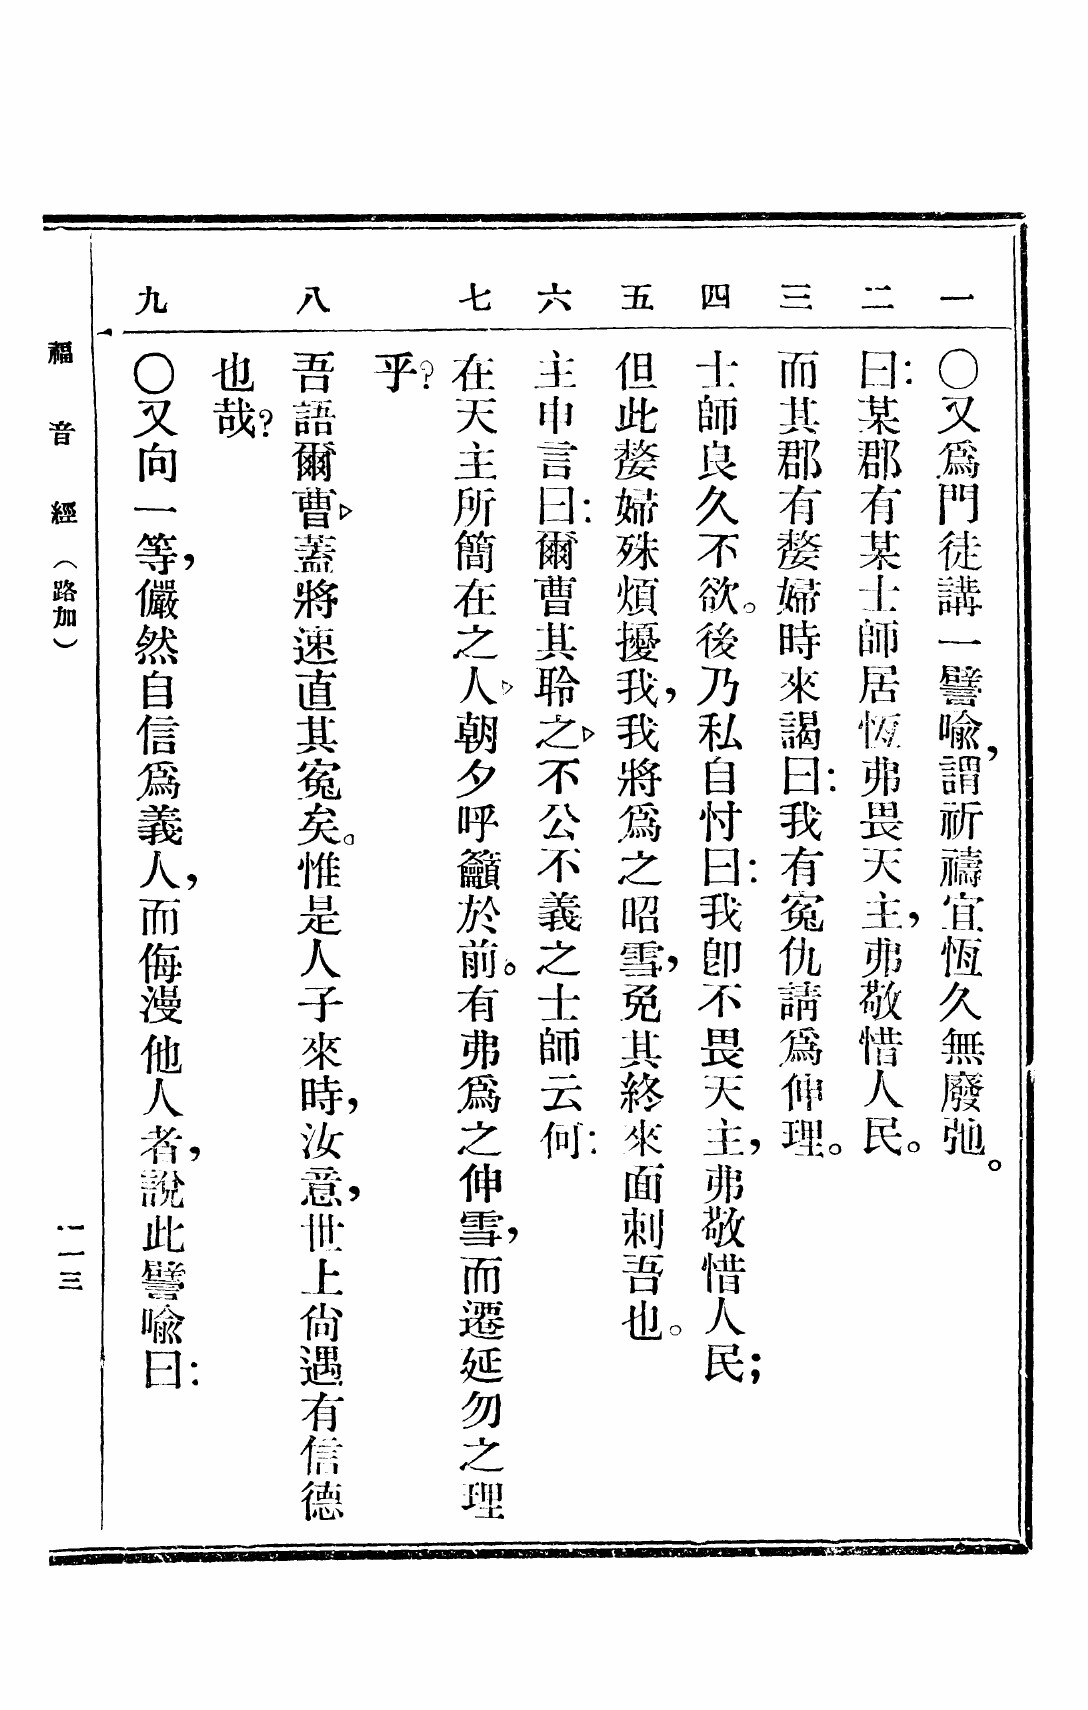 一 〇又爲門徒講一譬喩，謂祈禱宜恆久無廢弛。
二 曰：某郡有某士師居恆弗畏天主，弗敬惜人民。
三 而其郡有嫠婦時來謁曰：我有寃仇請爲伸理。
四 士師良久不欲。後乃私自忖曰：我卽不畏天主，弗敬惜人民；
五 但此嫠婦殊煩擾我，我將爲之昭雪，免其終來面刺吾也。
六 主申言曰：爾曹其聆之▷不公不義之士師云何：
七 在天主所簡在之人▷朝夕呼籲於前。有弗爲之伸雪，而遷延勿之理
乎？
八 吾語爾曹▷蓋將速直其寃矣。惟是人子來時，汝意，世上尙遇有信德
也哉？
九 〇又向一等，儼然自信爲義人，而侮漫他人者，說此譬喩曰：
福音經（路加）
一一三